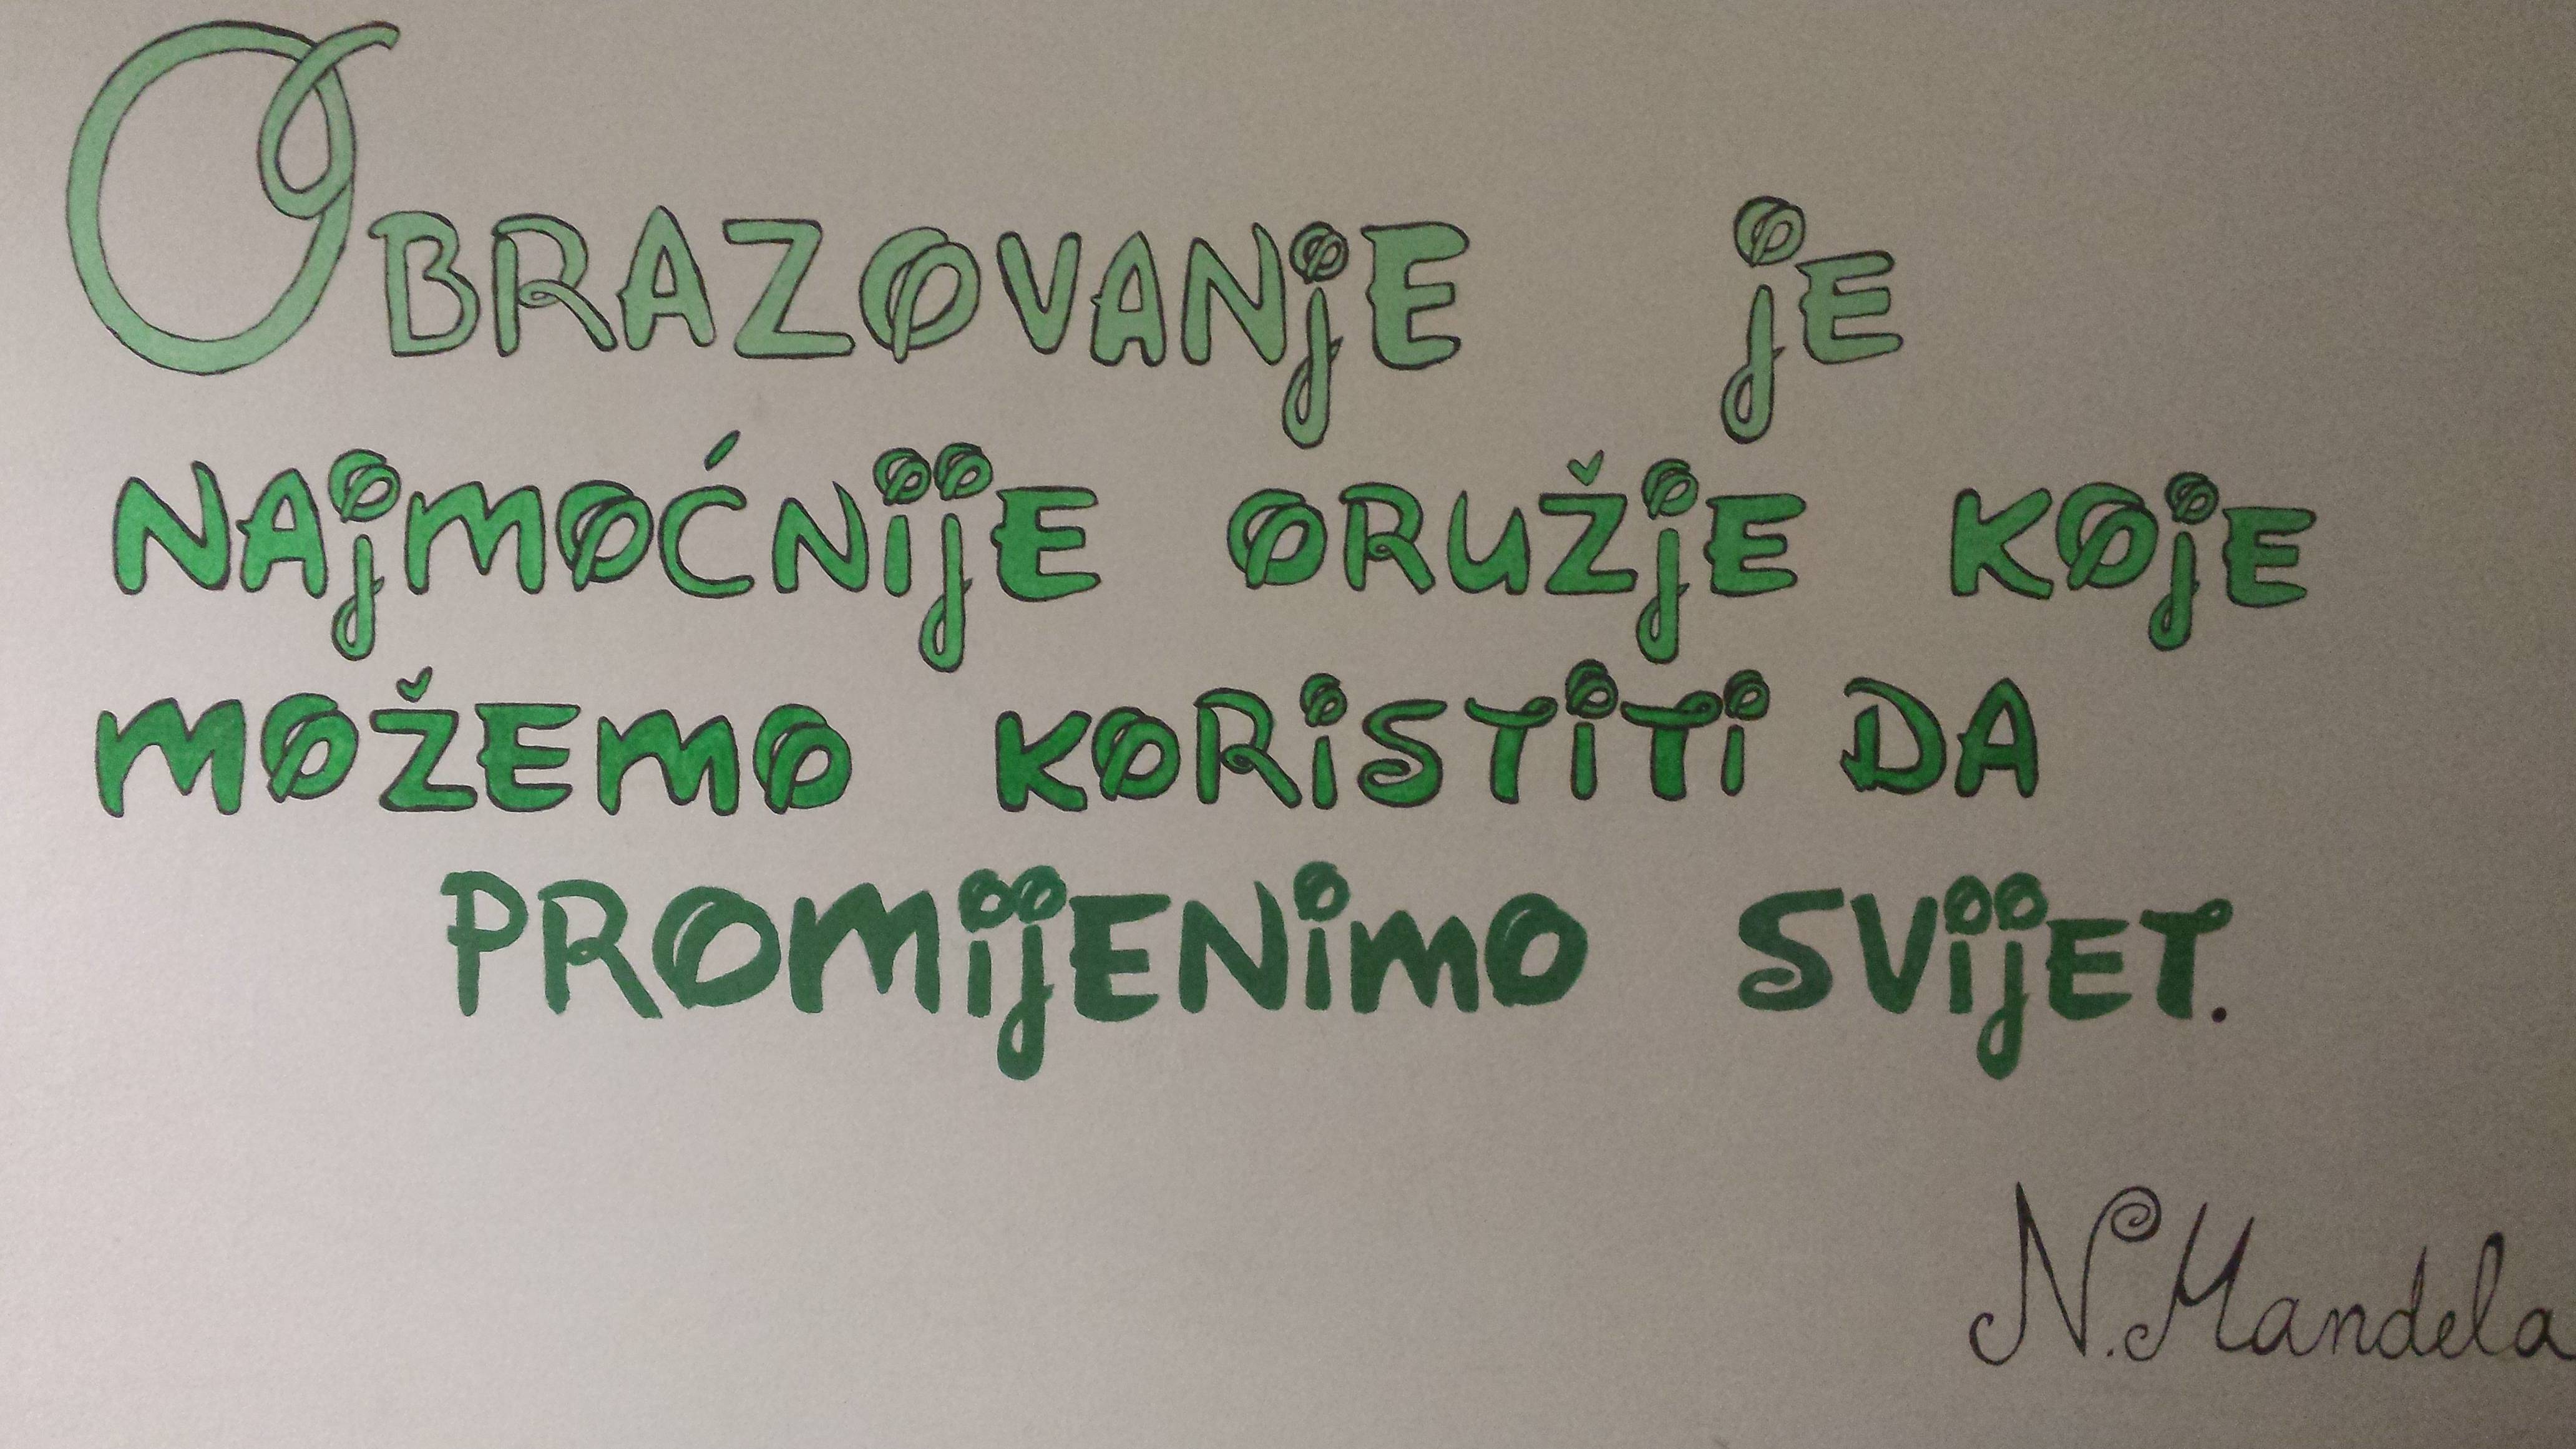 OBRAZOVANjE jE
NAjMOĆNijE ORUŽjE KOjE
MOŽEMO KORiSTiTi DA
PROMijENiMO SVijET.
N. Mandela